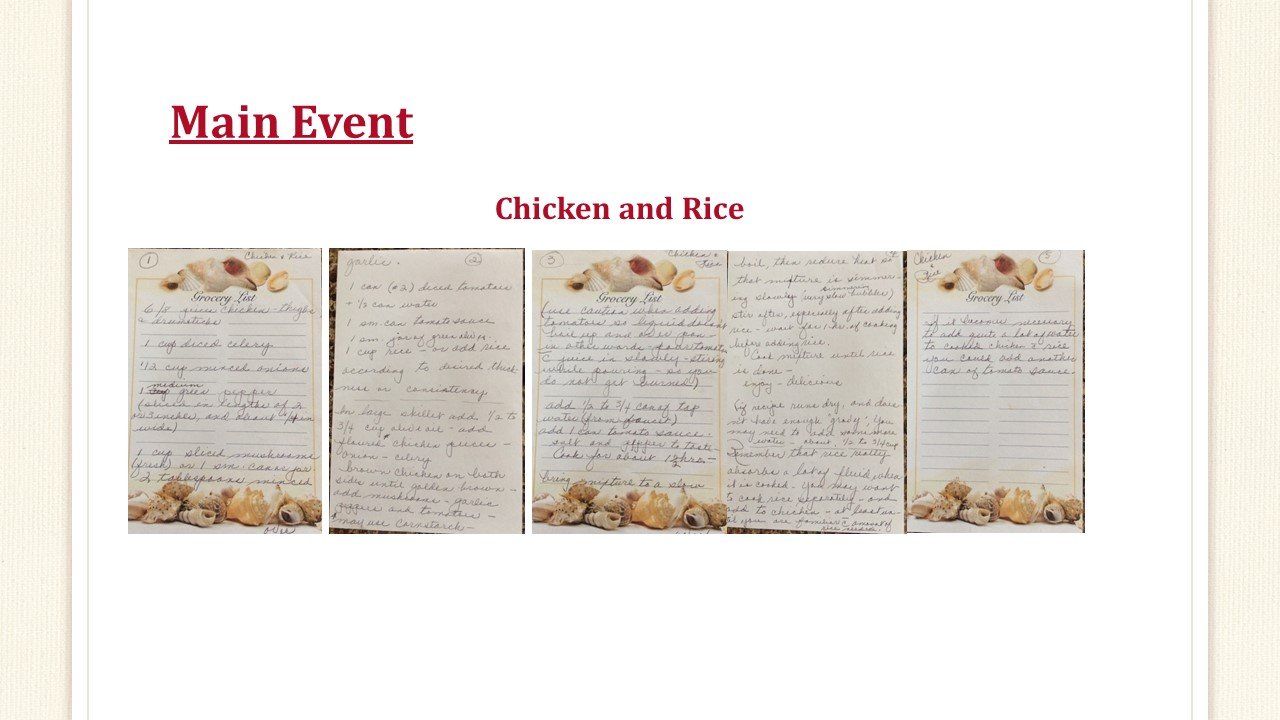 Main Event
Chicken and Rice
1
Chicken & Rice
Grocery List
6 lg. piece chicken - thighs
& drumsticks
1 cup diced celery
1/2 cup minced onions
medium
1 green pepper
(slice in lengths of 2
or 3 inches, and about
wide)
1 cup sliced mushrooms
(fresh) or 1 sm. can or jar
2 tablespoons minced
over
2
garlic.
1 can (#2) diced tomatoes
+ 1/2 can water
1 sm can tomato sauce
1 sm jar of green olives
1 cup rice - or add rice
according to desired thick-
ness or consistency
In large skillet add 1/2 to
3/4 cup olive oil - add
floured chicken pieces -
onion - celery
brown chicken on both
sides until golden brown -
add mushrooms - garlic
peppers and tomatoes -
may use cornstarch -
3
Chicken &
Rice
Grocery List
(use caution when adding
tomatoes as liquid does
and oven
in other words, pour tomato
juice in slowly - stirring
while pouring - so you
do not get burned)
add 1/2 to 3/4 can of tap
water (from faucet)
add 1 can tomato sauce.
salt and pepper to taste
Cook for about 1 1/2 hrs -
bring mixture to a slow
boil, then reduce heat so
that mixture is simmer-
ing slowly (very slow bubbles)
stir often, especially after adding
rice - wait for 1 hr. of cooking
before adding rice
Cook mixture until rice
is done -
enjoy - delicious
(if recipe runs dry, and does
n't have enough "gravy", you
may need to add some more
water - about 1/2 to 3/4 cup
Remember that rice really
absorbs a lot of fluid when
it is cooked - You may want
to cook rice separately - and
add to chicken - at least un-
til you are familiar c amount of
rice needed.
Chicken
&
Rice
5
Grocery List
If it becomes necessary
to add quite a lot of water
to cooked chicken & rice
you could add another
can of tomato sauce.